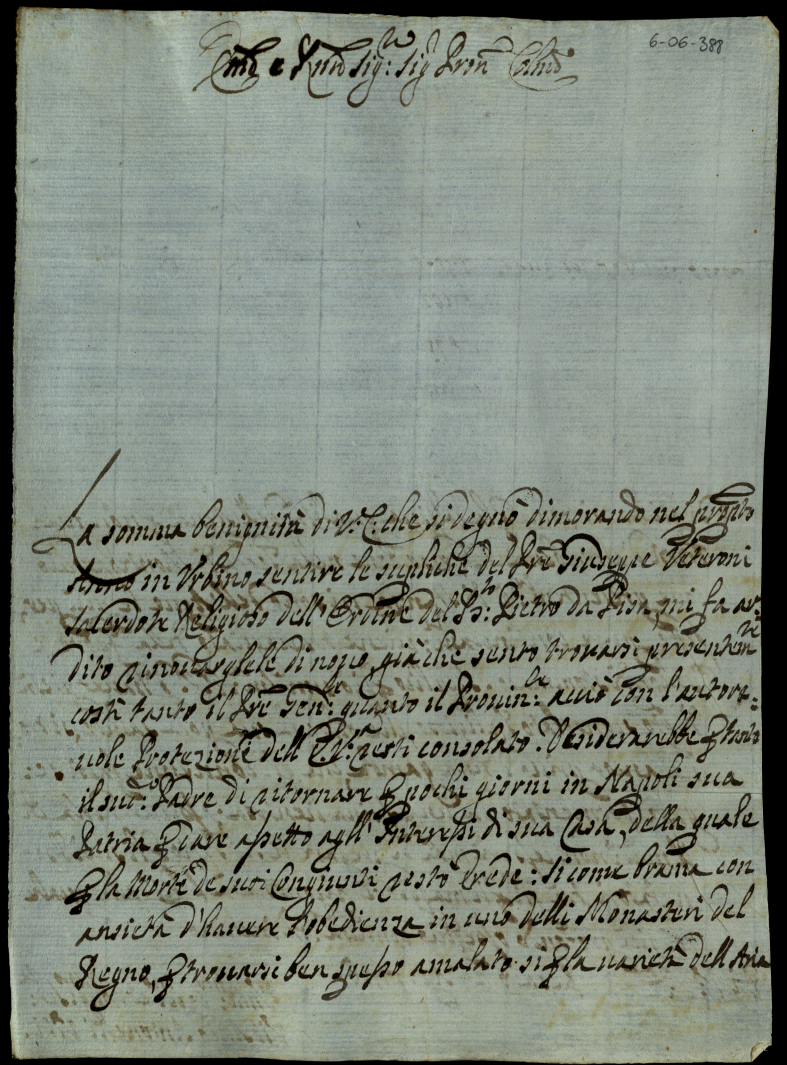 6-06-388
Em̃o e Rm̃o Sig:r Sig Pron Colm̃o
La somma benignità di V. E. che si degnò dimorando nel
Anno in Urbino sentire le supliche del Prē Giuseppe Veteroni
Sacerdote Religioso dell' Ordine del B:to Pietro da Pisa, mi fa ar:
dito rinovargliele di novo, già che sento trovarsi presentem:te
costì tanto il Prē Gen:le quanto il Provin:le acciò con l'autore:
vole Protezione dell' E. V. resti consolato. Desiderarebbe ꝑtanto
il sud:o Padre di ritornare ꝑ pochi giorni in Napoli sua
Patria ꝑ dare assetto agl' Interessi di sua Casa, della quale
ꝑ la Morte de suoi Congiunti restò Erede: si come brama con
ansietà d'havere l'obedienza in uno delli Monasteri del
Regno, ꝑ trovarsi ben spesso amalato si ꝑ la varietà dell Aria